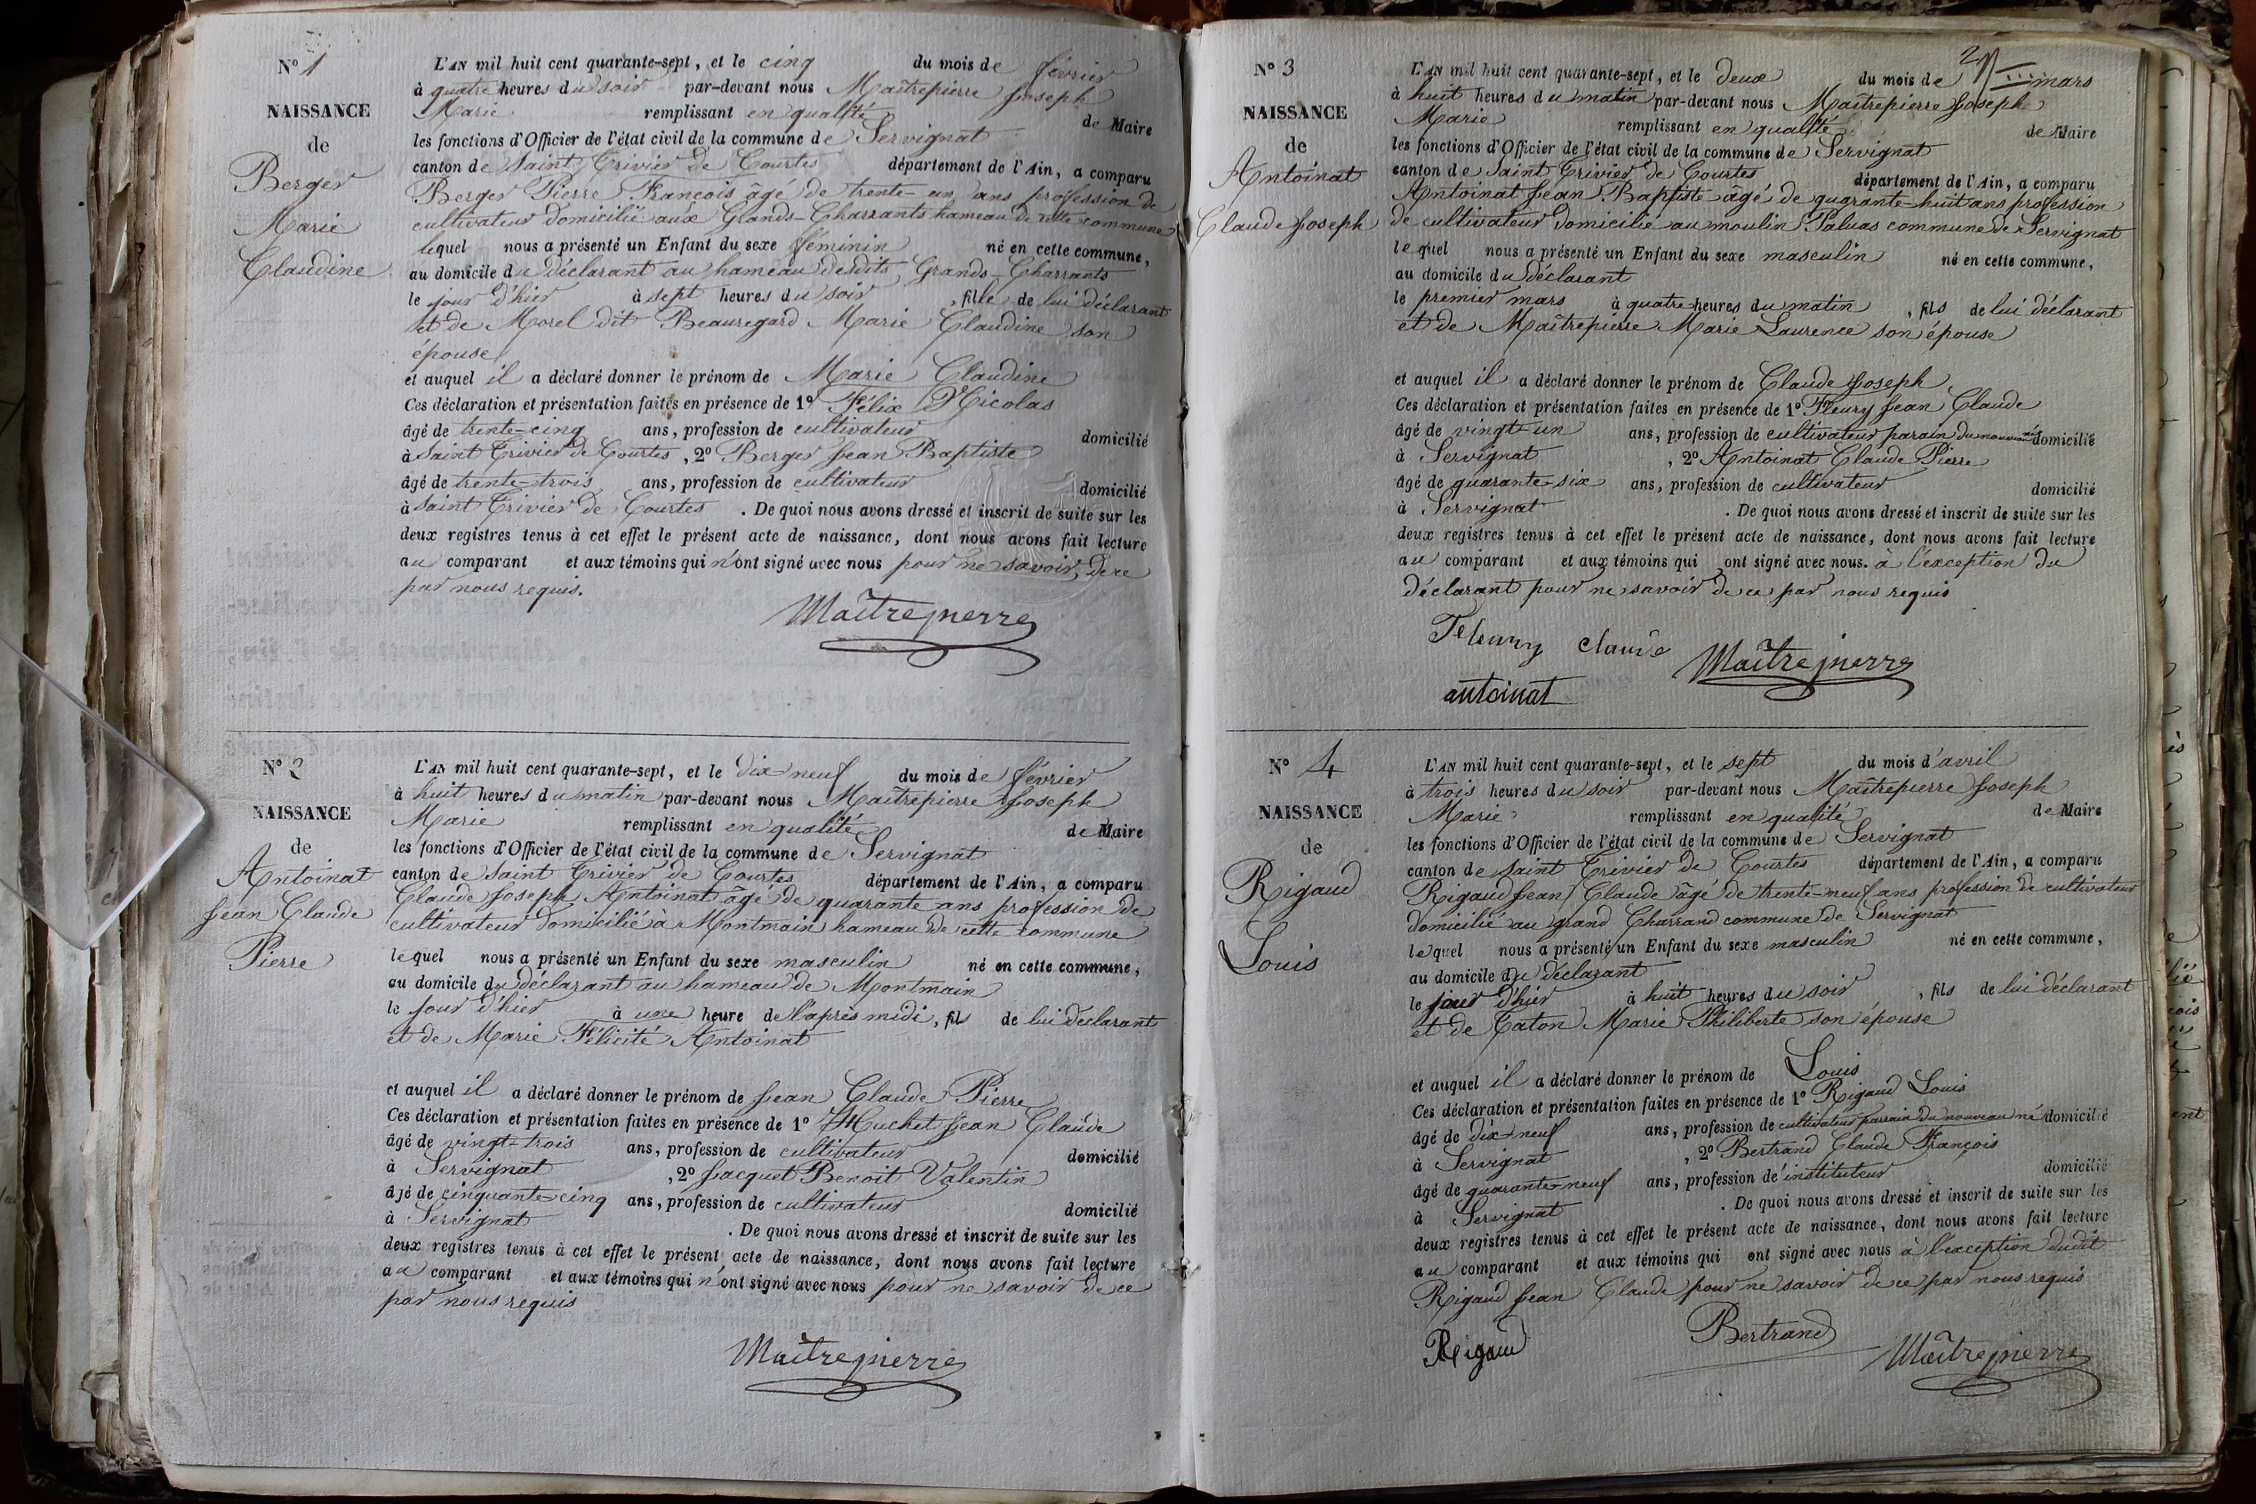 N° 1
NAISSANCE
de
Berger
Marie
Claudine
L'AN mil huit cent quarante-sept, et le cinq du mois de février
à quatre heures du soir par-devant nous Maîtrepierre Joseph
Marie remplissant en qualité de Maire
les fonctions d'Officier de l'état civil de la commune de Servignat
canton de Saint Trivier de Courtes département de l'Ain, a comparu
Berger Pierre François âgé de trente-un ans profession de
cultivateur domicilié aux Grands-Charrants hameau de cette commune
lequel nous a présenté un Enfant du sexe féminin né en cette commune,
au domicile du déclarant au hameau desdits Grands-Charrants
le jour d'hier à sept heures du soir, fille de lui déclarant
et de Morel dit Beauregard Marie Claudine son
épouse
et auquel il a déclaré donner le prénom de Marie Claudine
Ces déclaration et présentation faites en présence de 1° Félix Nicolas
âgé de trente-cinq ans, profession de cultivateur domicilié
à Saint Trivier de Courtes, 2° Berger Jean Baptiste
âgé de trente-trois ans, profession de cultivateur domicilié
à Saint Trivier de Courtes. De quoi nous avons dressé et inscrit de suite sur les
deux registres tenus à cet effet le présent acte de naissance, dont nous avons fait lecture
au comparant et aux témoins qui n'ont signé avec nous pour ne savoir, de ce
par nous requis.
Maîtrepierre
N° 2
NAISSANCE
de
Antoinat
Jean Claude
Pierre
L'AN mil huit cent quarante-sept, et le dix neuf du mois de février
à huit heures du matin par-devant nous Maîtrepierre Joseph
Marie remplissant en qualité de Maire
les fonctions d'Officier de l'état civil de la commune de Servignat
canton de Saint Trivier de Courtes département de l'Ain, a comparu
Claude Joseph Antoinat âgé de quarante ans profession de
cultivateur domicilié à Montmain hameau de cette commune
lequel nous a présenté un Enfant du sexe masculin né en cette commune,
au domicile du déclarant au hameau de Montmain
le jour d'hier à une heure de l'après midi, fils de lui déclarant
et de Marie Félicité Antoinat
et auquel il a déclaré donner le prénom de Jean Claude Pierre
Ces déclaration et présentation faites en présence de 1° Huchet Jean Claude
âgé de vingt-trois ans, profession de cultivateur domicilié
à Servignat, 2° Jacquet Benoit Valentin
âgé de cinquante cinq ans, profession de cultivateur domicilié
à Servignat. De quoi nous avons dressé et inscrit de suite sur les
deux registres tenus à cet effet le présent acte de naissance, dont nous avons fait lecture
au comparant et aux témoins qui n'ont signé avec nous pour ne savoir de ce
par nous requis
Maîtrepierre
2
N° 3
NAISSANCE
de
Antoinat
Claude Joseph
L'AN mil huit cent quarante-sept, et le deux du mois de mars
à huit heures du matin par-devant nous Maîtrepierre Joseph
Marie remplissant en qualité de Maire
les fonctions d'Officier de l'état civil de la commune de Servignat
canton de Saint Trivier de Courtes département de l'Ain, a comparu
Antoinat Jean Baptiste âgé de quarante-huit ans profession
de cultivateur domicilié au moulin Paluas commune de Servignat
lequel nous a présenté un Enfant du sexe masculin né en cette commune,
au domicile du déclarant
le premier mars à quatre heures du matin, fils de lui déclarant
et de Maîtrepierre Marie Laurence son épouse
et auquel il a déclaré donner le prénom de Claude Joseph
Ces déclaration et présentation faites en présence de 1° Fleury Jean Claude
âgé de vingt-un ans, profession de cultivateur parain du nouveau né domicilié
à Servignat, 2° Antoinat Claude Pierre
âgé de quarante-six ans, profession de cultivateur domicilié
à Servignat. De quoi nous avons dressé et inscrit de suite sur les
deux registres tenus à cet effet le présent acte de naissance, dont nous avons fait lecture
au comparant et aux témoins qui ont signé avec nous. à l'exception du
déclarant pour ne savoir de ce par nous requis
Fleury Claude Maîtrepierre
antoinat
N° 4
NAISSANCE
de
Rigaud
Louis
L'AN mil huit cent quarante-sept, et le sept du mois d'avril
à trois heures du soir par-devant nous Maîtrepierre Joseph
Marie remplissant en qualité de Maire
les fonctions d'Officier de l'état civil de la commune de Servignat
canton de Saint Trivier de Courtes département de l'Ain, a comparu
Rigaud Jean Claude âgé de trente-neuf ans profession de cultivateur
domicilié au grand Charrand commune de Servignat
lequel nous a présenté un Enfant du sexe masculin né en cette commune,
au domicile du déclarant
le jour d'hier à huit heures du soir, fils de lui déclarant
et de Caton Marie Philiberte son épouse
et auquel il a déclaré donner le prénom de Louis
Ces déclaration et présentation faites en présence de 1° Rigaud Louis
âgé de dix-neuf ans, profession de cultivateur parrain du nouveau né domicilié
à Servignat, 2° Bertrand Claude François
âgé de quarante-neuf ans, profession d'instituteur domicilié
à Servignat. De quoi nous avons dressé et inscrit de suite sur les
deux registres tenus à cet effet le présent acte de naissance, dont nous avons fait lecture
au comparant et aux témoins qui ont signé avec nous à l'exception dudit
Rigaud Jean Claude pour ne savoir de ce par nous requis
Rigaud Bertrand Maîtrepierre